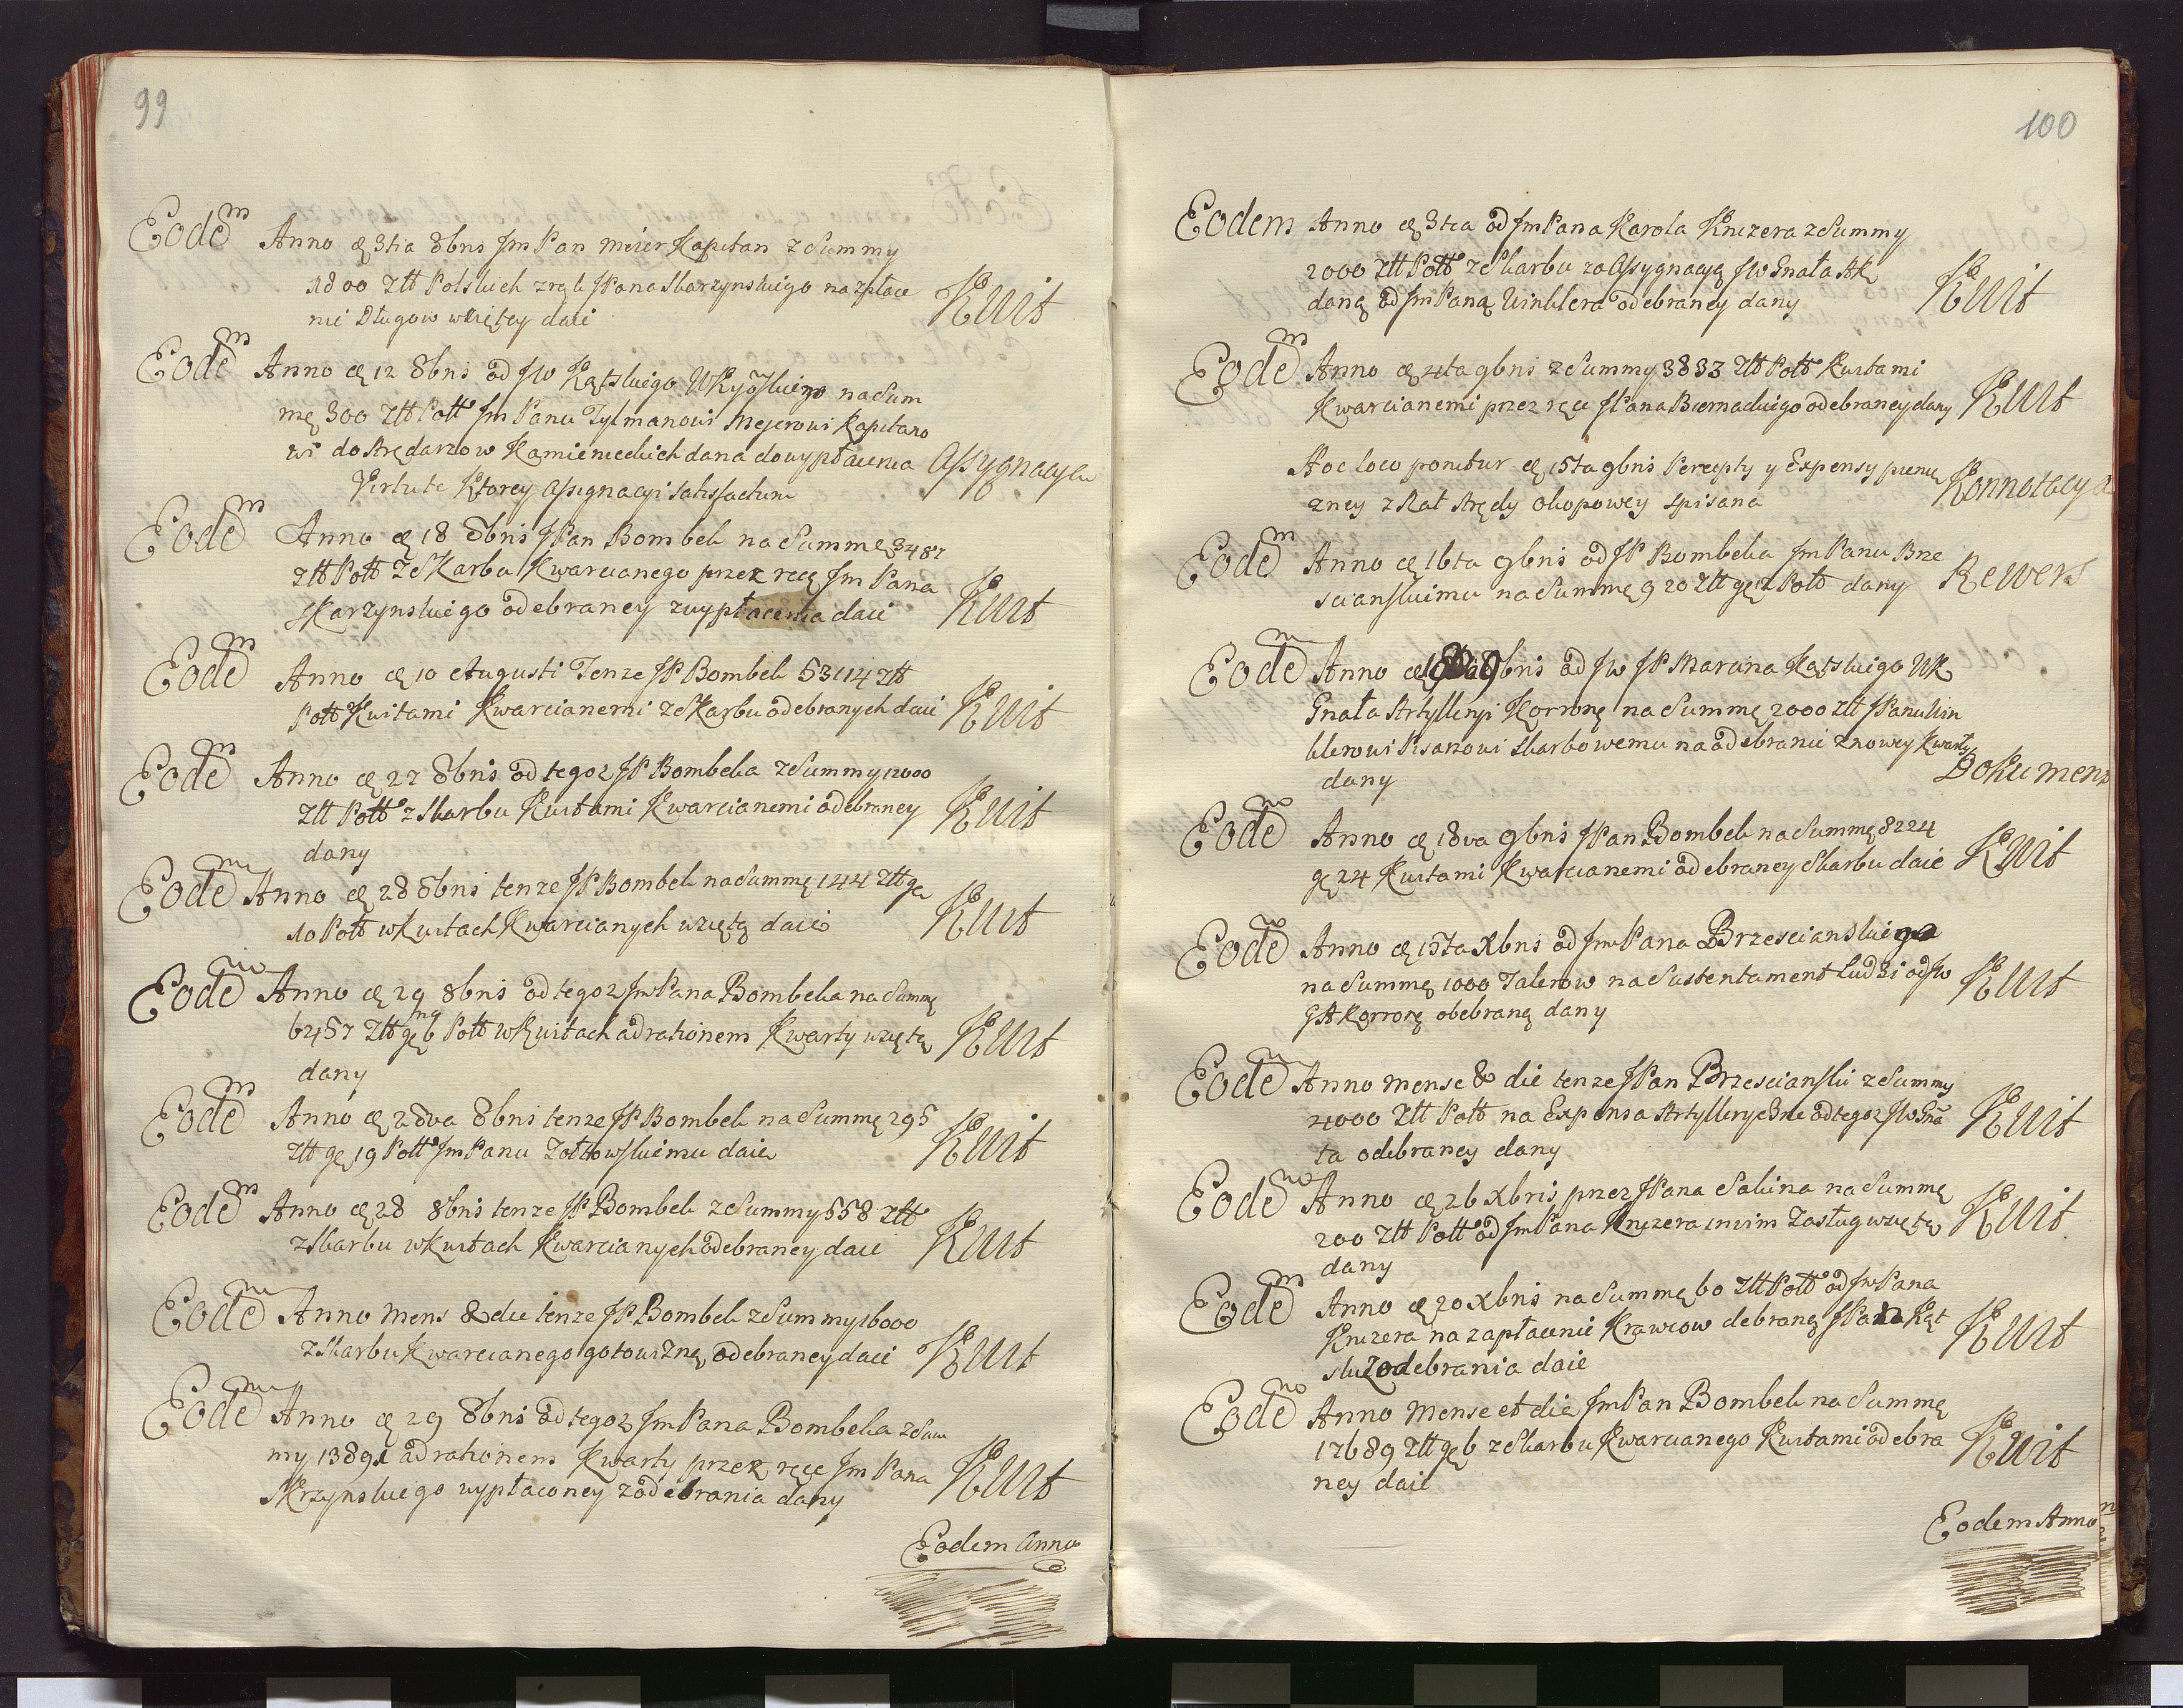 99
Eodem Anno æ 3tia 8bris Jm Pan Meier Kapitan z Summy
1800 Złł Polskich z rąk JPana Skarzynskiego na zpłace
nie Długow wziętey daie
Kwit
Eodem Anno æ 12 8bris od JW Kątskiego WKijowskiego na Sum
mę 300 Złł Poll Jm Panu Tylmanowi Mejerowi Kapitano
wi do Arędarzow Kamienieckich dana do wypłacenia
Virtute Ktorey Assignacyi satisfactum
Assygnacyia
Eodem Anno æ 18 8bris JPan Bombek na Summę 3487
Złł Poll Ze Skarbu Kwarcianego przez ręce Jm Pana
Skarzynskiego odebraney z wypłacenia daie
Kwit
Eodem Anno æ 10 Augusti Tenze JP Bombek 53114 Złł
Poll Kwitami Kwarcianemi ze Skarbu odebranych daie
Kwit
Eodem Anno æ 27 8bris od tegoz JP Bombeka z Summy 12000
Złł Poll z Skarbu Kwitami Kwarcianemi odebraney
dany
Kwit
Eodem Anno æ 28 8bris tenze JP Bombek na Summę 144 Złł gr
10 Poll w Kwitach Kwarcianych wziętą daie
Kwit
Eodem Anno æ 29 8bris od tegoz Jm Pana Bombeka na Summę
6457 Złł gr 6 Poll w Kwitach ad rationem Kwarty wziętą
dany
Kwit
Eodem Anno æ 28va 8bris tenze JP Bombek na Summę 295
Złł gr 19 Poll Jm Panu Zołtowskiemu daie
Kwit
Eodem Anno æ 28 8bris tenze JP Bombek z Summy 558 Złł
z Skarbu w Kwitach Kwarcianych odebraney daie
Kwit
Eodem Anno Mens & die tenze JP Bombek z Summy 16000
z Skarbu Kwarcianego gotowizną odebraney daie
Kwit
Eodem Anno æ 29 8bris od tegoz Jm Pana Bombeka z Sum
my 13891 ad rationem Kwarty przez ręce Jm Pana
Skrzynskiego wypłaconey z odebrania dany
Kwit
Eodem Anno
100
Eodem Anno æ 3tia od Jm Pana Karola Knizera z Summy
2000 Złł Poll ze Skarbu za Assygnacyą JW Gnała AK
daną od Jm Pana Winklera odebraney dany
Kwit
Eodem Anno æ 4ta 9bris z Summy 3833 Złł Poll Kwitami
Kwarcianemi przez ręce JPana Biernackiego odebraney dany
Kwit
Hoc loco ponitur æ 15ta 9bris Percepty y Expensy pienię
zney z Rat Arędy Okopowey spisana
Konnotacya
Eodem Anno æ 16ta 9bris od JP Bombeka Jm Panu Brze
scianskiemu na Summę 920 Złł gr 2 Poll dany
Rewers
Eodem Anno æ 9bris od JW JP Marcina Kątskiego WK
Gnała Artylleryi Korronę na Summę 2000 Złł JPanu Win
klerowi Pisarzowi Skarbowemu na odebranie z nowey Kwarty
dany
Dokument
Eodem Anno æ 18va 9bris JPan Bombek na Summę 8224
gr 24 Kwitami Kwarcianemi odebraney Skarbu daie
Kwit
Eodem Anno æ 15ta Xbris od Jm Pana Brzescianskiego
na Summę 1000 Talerow na Sustentament Ludzi od JW
GA Korronę odebraną dany
Kwit
Eodem Anno Mense & die tenze JPan Brzescianski z Summy
4000 Złł Poll na Expensa Artylleryczne od tegoz JW Gna
ła odebraney dany
Kwit
Eodem Anno æ 26 Xbris przez JPana Salina na Summę
200 Złł Poll od Jm Pana Knizera in vim Zasług wziętą
dany
Kwit
Eodem Anno æ 20 Xbris na Summę 60 Złł Poll od Jm Pana
Knizera na zapłacenie Krawcow debraną JPan Kąt
ski Z odebrania daie
Kwit
Eodem Anno Mense et die Jm Pan Bombek na Summę
17689 Złł gr 6 z Skarbu Kwarcianego Kwitami odebra
ney daie
Kwit
Eodem Anno